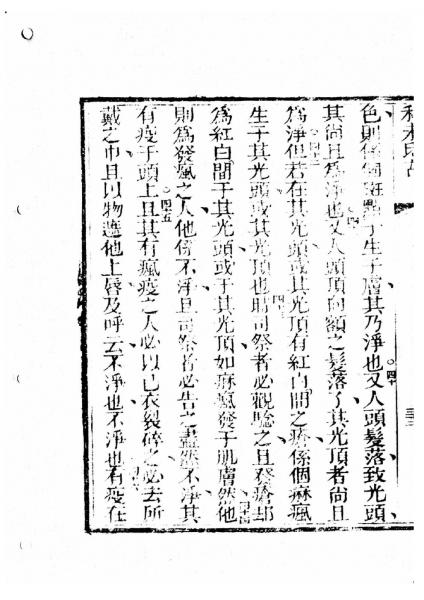 三三
色則係個斑點于生于膚其乃淨也〇四十又人頭髮落致光頭
其尚且為淨也又人頭頂向額之髮落了其光頂者尚且
為淨〇四二但若在其光頭或其光頂有紅白間之瘡係個痳瘋
生于其光頭或其光頂也四三時司祭者必觀騐之且發瘡却
為紅白間于其光頭或于其光頂如痳瘋發于肌膚然他
則為發瘋之人他係不淨且司祭者必告之盡然不淨其
有疫于頭上〇四五且其有瘋疫之人必以己衣裂碎之必去所
戴之巾且以物遮他上唇及呼云不淨也不淨也有疫在